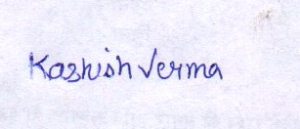 Kashish Verma